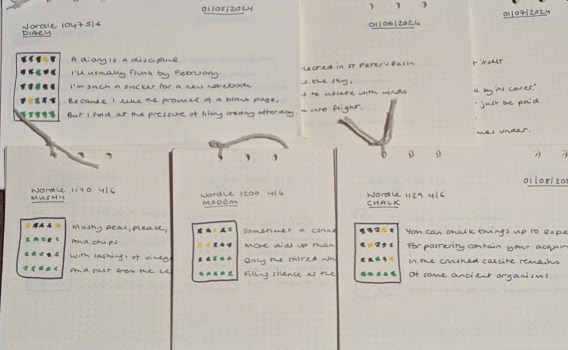 01/05/2024
Wordle 1047 5/6
DIARY
A diary is a discipline
I'll usually flunk by February.
I'm such a sucker for a new notebook
Because I like the promise of a blank page,
But I fold at the pressure of filling every after day.
01/06/2024
in St Peter's Basin
the sky,
to inflate with winds
into flight.
01/07/2024
itself
by its cover.
just be paid
under.
Wordle 1170 4/6
MUSHY
Mushy peas, please,
And chips
With lashings of
And salt from the
Wordle 1200 4/6
MODEM
Sometimes a
More dial up than
Only the
Filling silence as the
01/08/
Wordle 1129 4/6
CHALK
You can chalk things up to
For posterity contain your
In the crushed calcite remains
Of some ancient organisms.